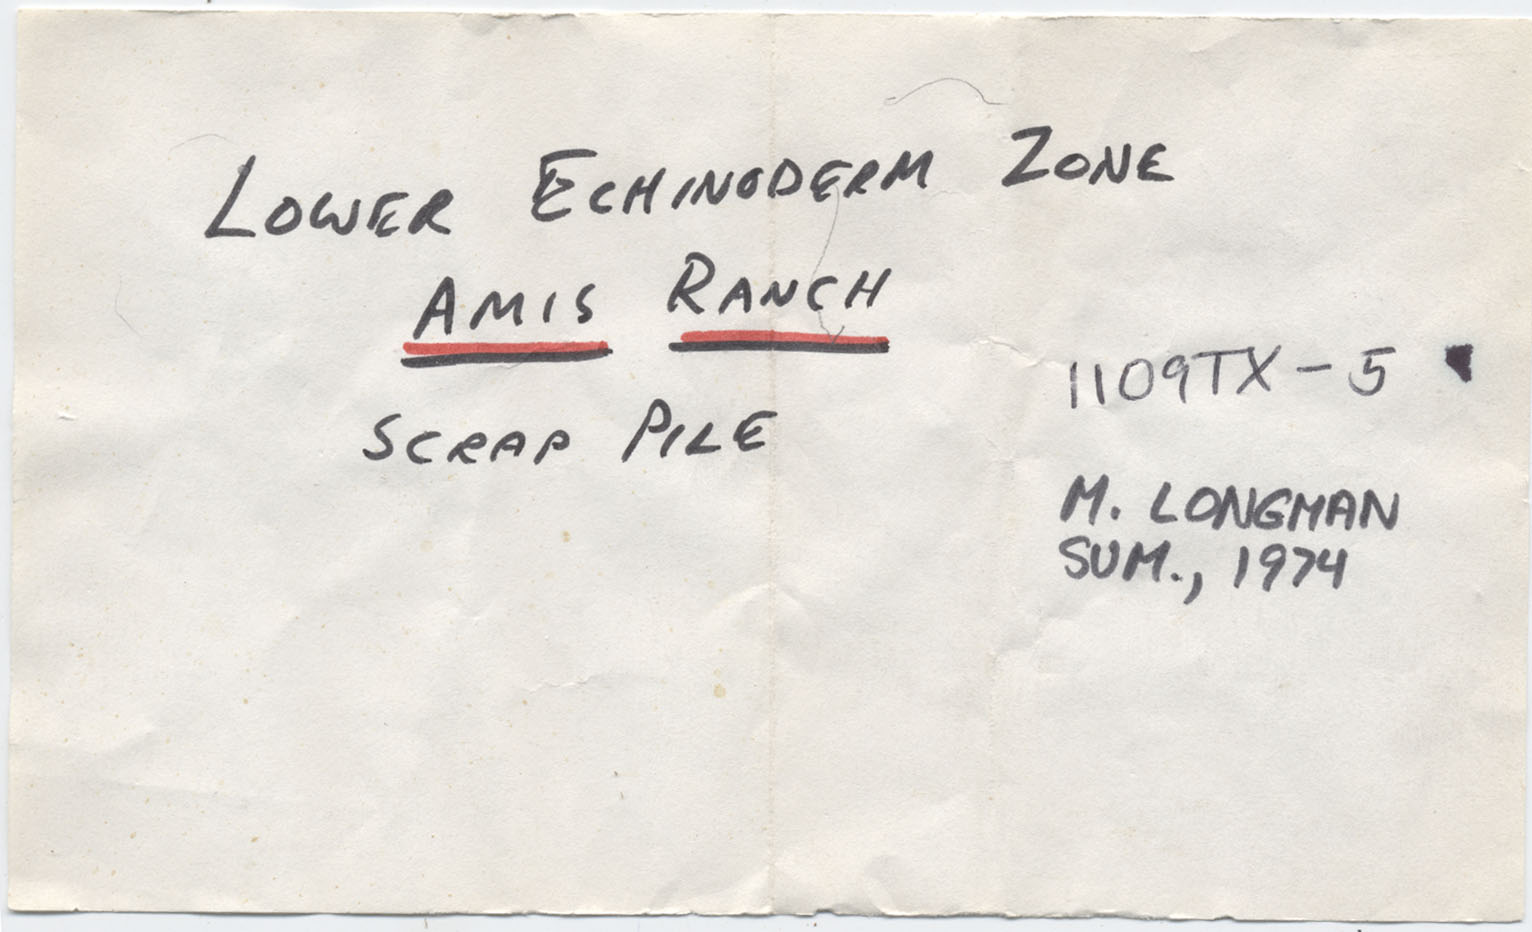 LOWER ECHINODERM ZONE
AMIS RANCH
SCRAP PILE
1109TX-5
M. LONGMAN
SUM., 1974